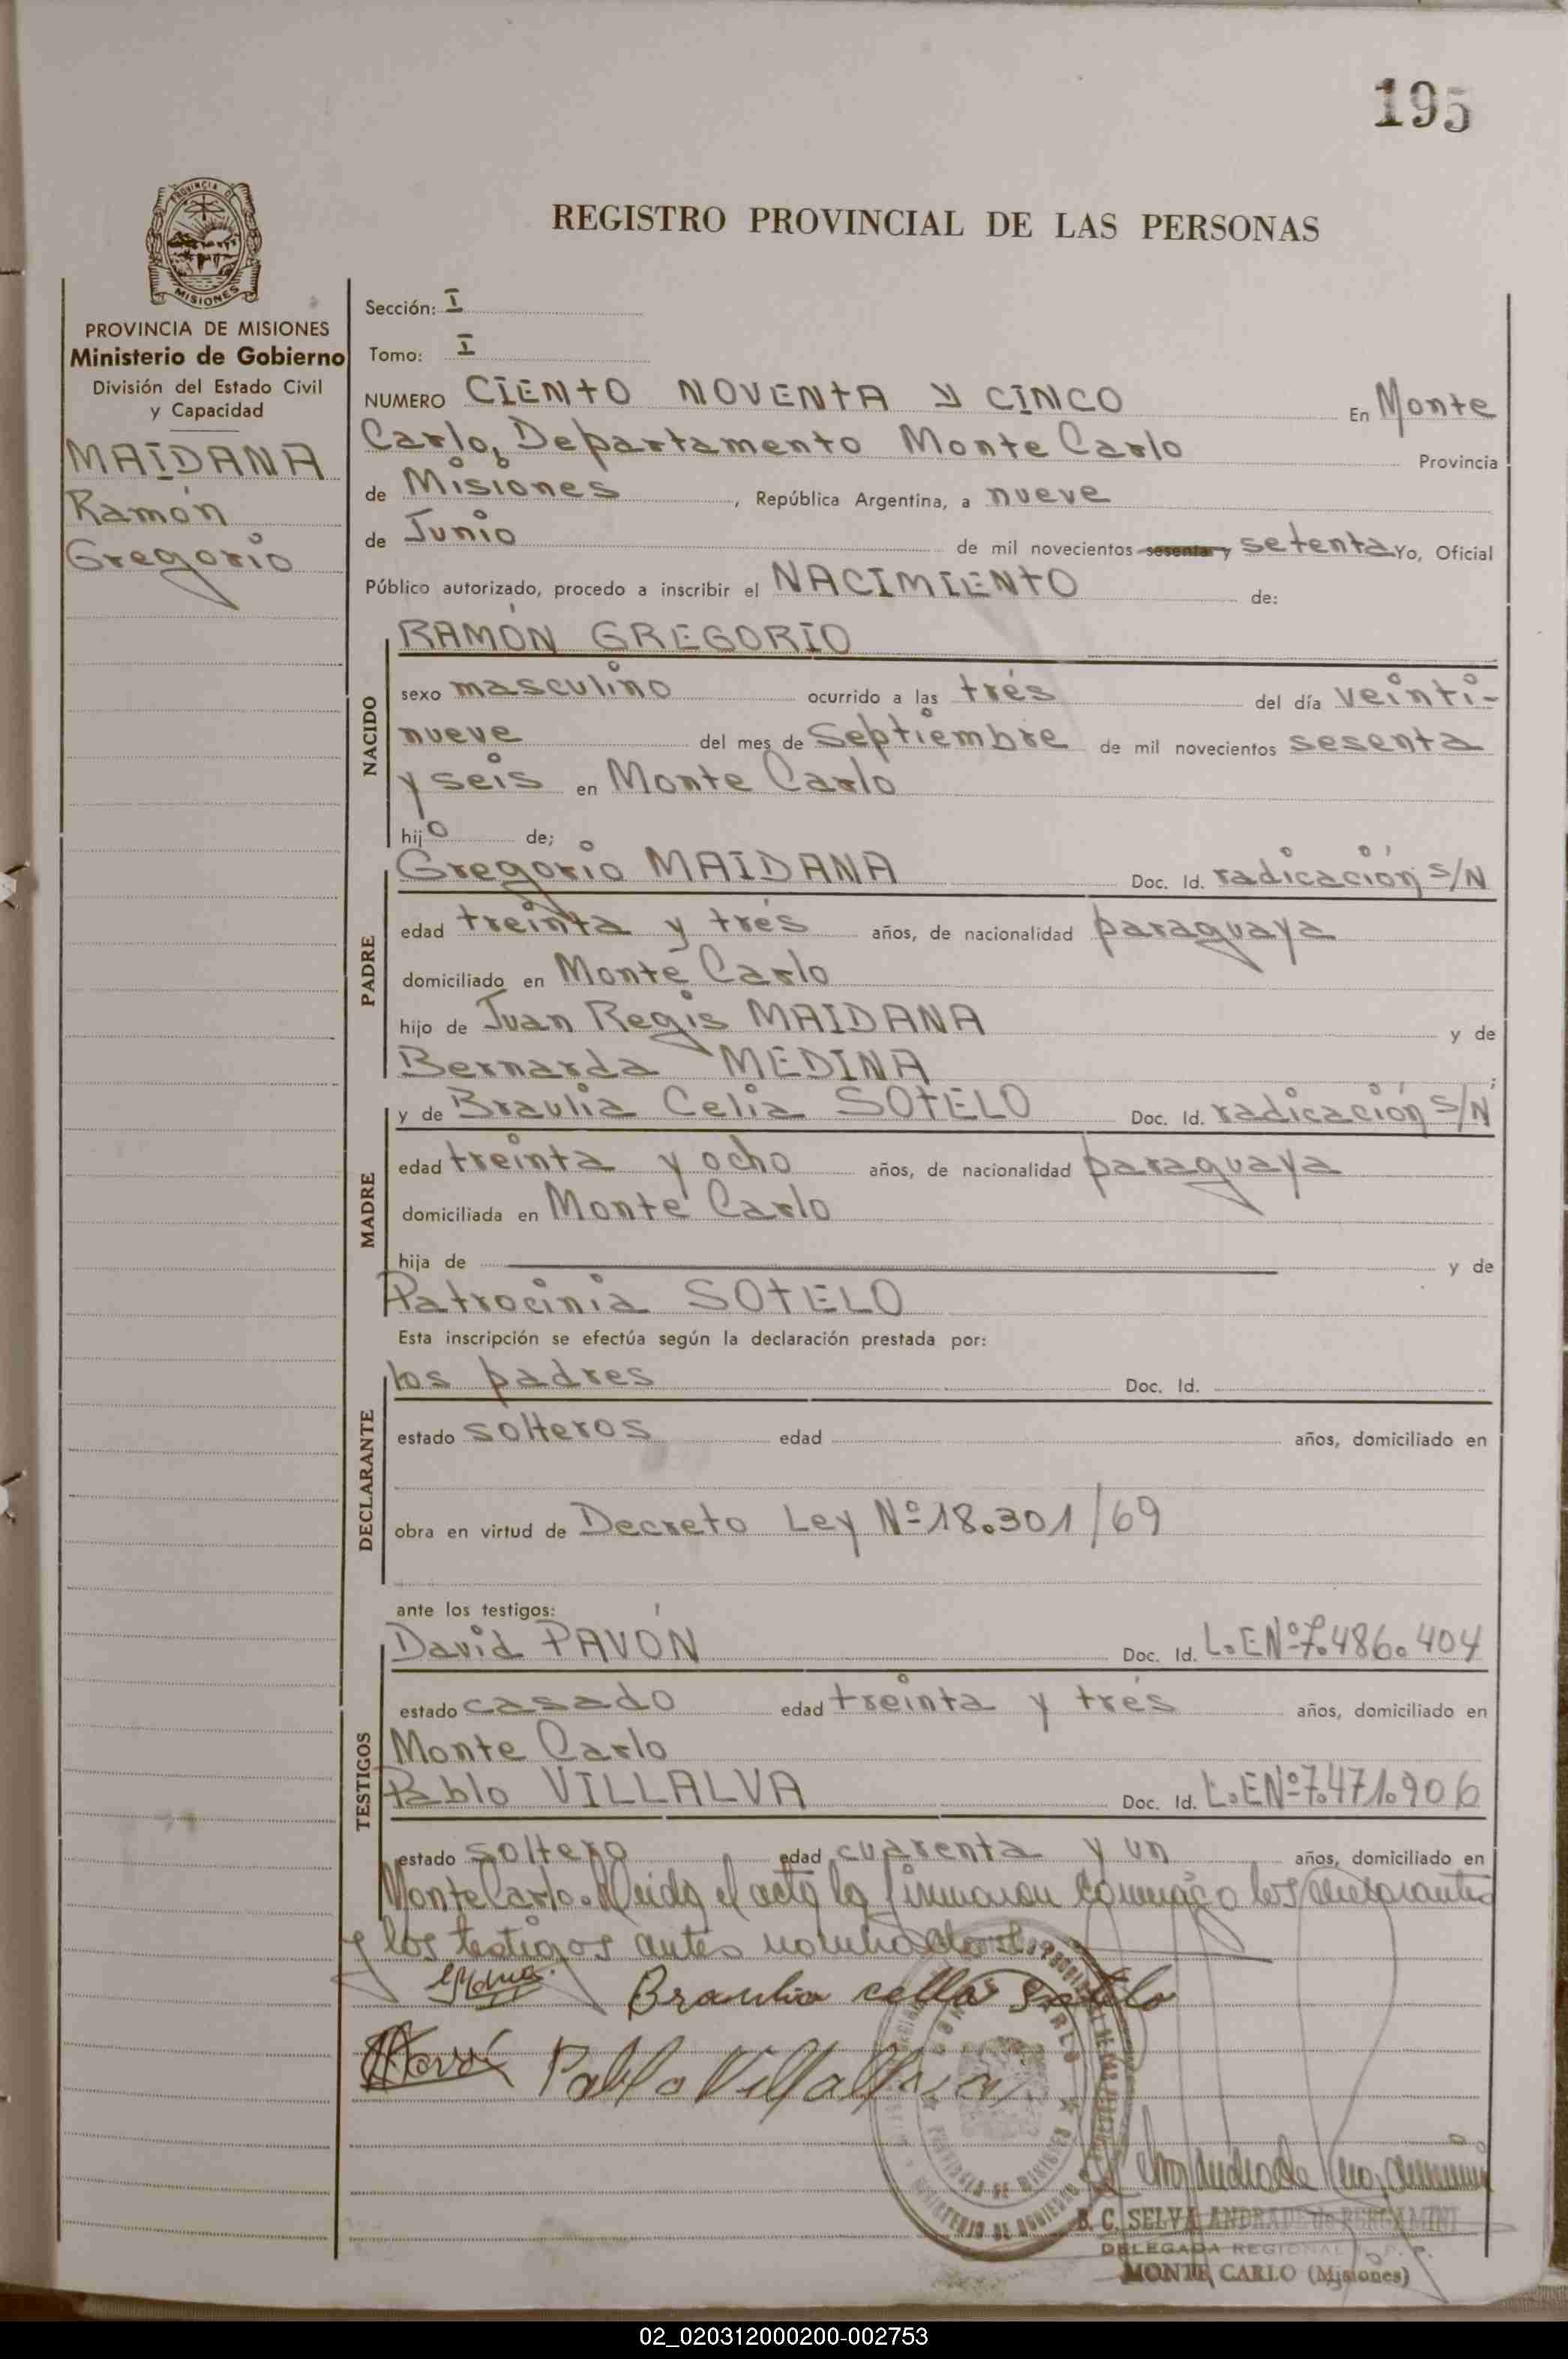 195
PROVINCIA DE
MISIONES
REGISTRO PROVINCIAL DE LAS PERSONAS
PROVINCIA DE MISIONES
Ministerio de Gobierno
División del Estado Civil
y Capacidad
MAIDANA
Ramón
Gregorio
Sección: I
Tomo: I
NUMERO CIENTO NOVENTA Y CINCO En Monte
Carlo, Departamento Monte Carlo Provincia
de Misiones, República Argentina, a nueve
de Junio de mil novecientos sesenta y setenta Yo, Oficial
Público autorizado, procedo a inscribir el NACIMIENTO de:
NACIDO
RAMÓN GREGORIO
sexo masculino ocurrido a las trés del día veinti-
nueve del mes de Septiembre de mil novecientos sesenta
y seis en Monte Carlo
hijo de;
PADRE
Gregorio MAIDANA Doc. Id. radicación S/N
edad treinta y trés años, de nacionalidad paraguaya
domiciliado en Monte Carlo
hijo de Juan Regis MAIDANA y de
Bernarda MEDINA;
MADRE
y de Braulia Celia SOTELO Doc. Id. radicación S/N
edad treinta y ocho años, de nacionalidad paraguaya
domiciliada en Monte Carlo
hija de y de
Patrocinia SOTELO
Esta inscripción se efectúa según la declaración prestada por:
DECLARANTE
los padres Doc. Id.
estado solteros edad años, domiciliado en
obra en virtud de Decreto Ley Nº 18.301/69
ante los testigos:
TESTIGOS
David PAVÓN Doc. Id. L.E Nº 7.486.404
estado casado edad treinta y trés años, domiciliado en
Monte Carlo
Pablo VILLALVA Doc. Id. L.E Nº 7.471.906
estado soltero edad cuarenta y un años, domiciliado en
Monte Carlo. Leida el acta la firmaron conmigo los
y los testigos antes nombrados.
Braulia celia Sotelo
Pablo Villalva
B. C. SELVA ANDRADE de BERGAMINI
DELEGADA REGIONAL R. P. P.
MONTE CARLO (Misiones)
02_020312000200-002753